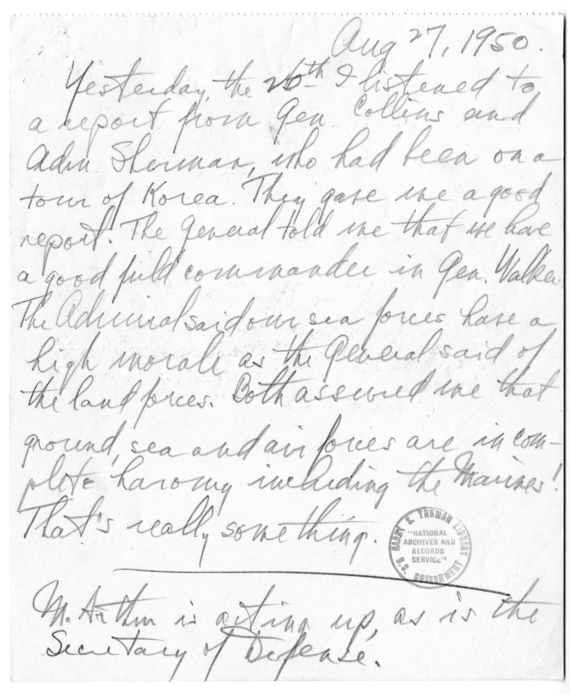 Aug 27, 1950.
Yesterday, the 26th I listened to
a report from Gen. Collins and
Adm Sherman, who had been on a
tour of Korea. They gave me a good
report. The General told me that we have
a good field commander in Gen. Walker.
The Admiral said our sea forces have a
high morale as the General said of
the land forces. Both assured me that
ground, sea and air forces are in com-
plete haromy including the Marines!
That's really something.
HARRY S. TRUMAN LIBRARY
"NATIONAL
ARCHIVES AND
RECORDS
SERVICE"
U.S. GOVERNMENT
M.Arthur is acting up, as is the
Secretary of Defense.